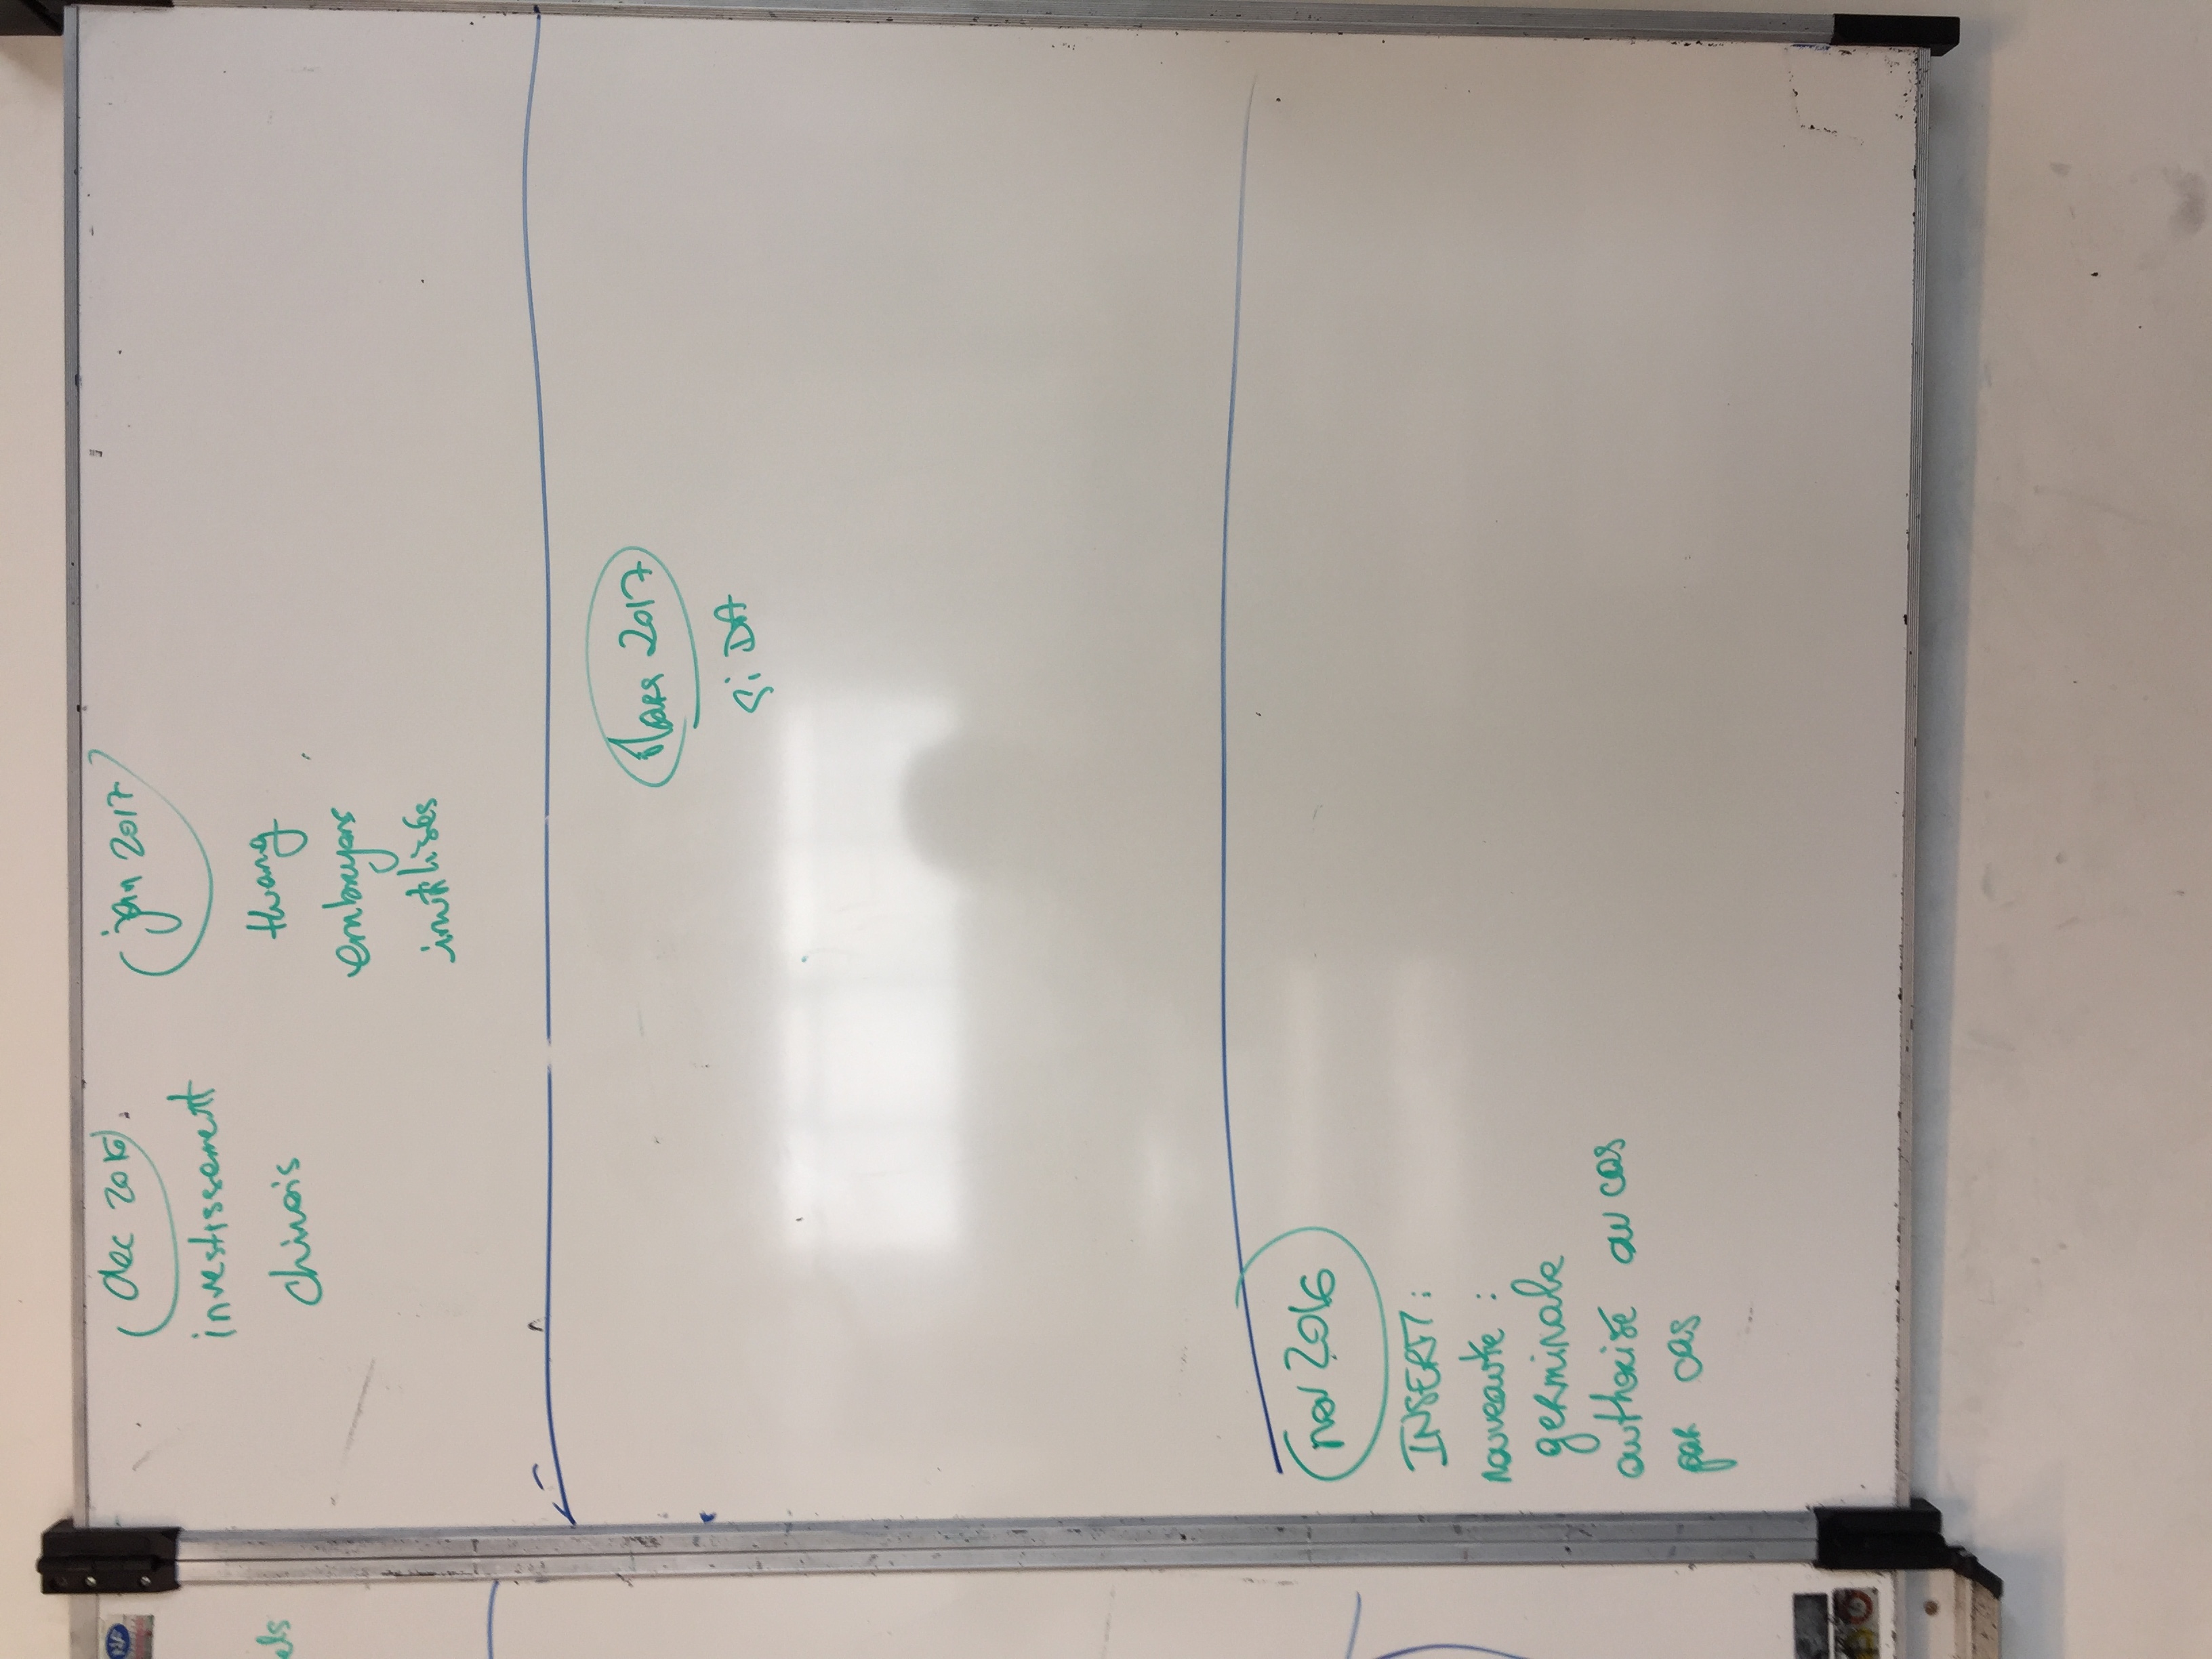 dec 2016
investissement
chinois
jan 2017
thuang
embryons
inutilisés
els
Mars 2017
SiDA
nov 2016
INSERM :
nouveauté :
germinale
authorisé au cas
par cas
NF